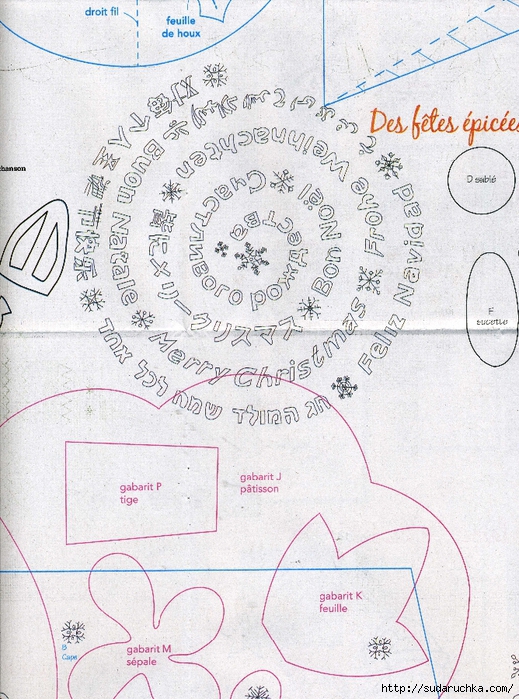 droit fil
feuille
de houx
Des fêtes épicées
chanson
D sablé
F
sucette
Feliz Navidad
Buon Natale
Frohe Weihnachten
Merry Christmas
חג המולד שמח לכל אחד
Bon Noël
メリークリスマス
Счастливого рождества
gabarit P
tige
gabarit J
pâtisson
gabarit K
feuille
gabarit M
sépale
B
Cape
http://sudaruchka.com/